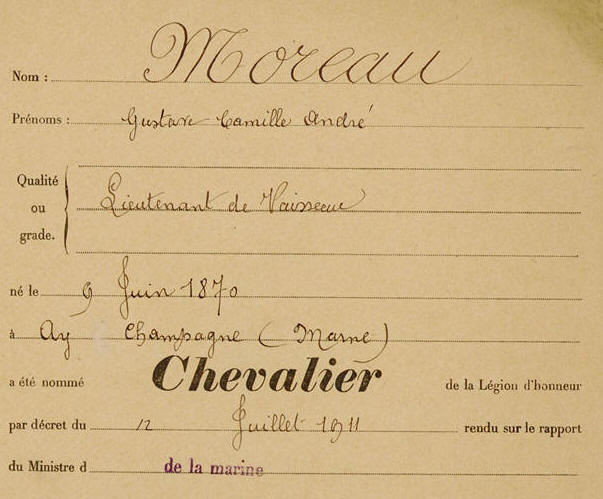 Nom : Moreau
Prénoms : Gustave Camille André
Qualité
ou Lieutenant de Vaisseau
grade.
né le 9 Juin 1870
à Ay Champagne (Marne)
a été nommé Chevalier de la Légion d'honneur
par décret du 12 Juillet 1911 rendu sur le rapport
du Ministre d de la marine